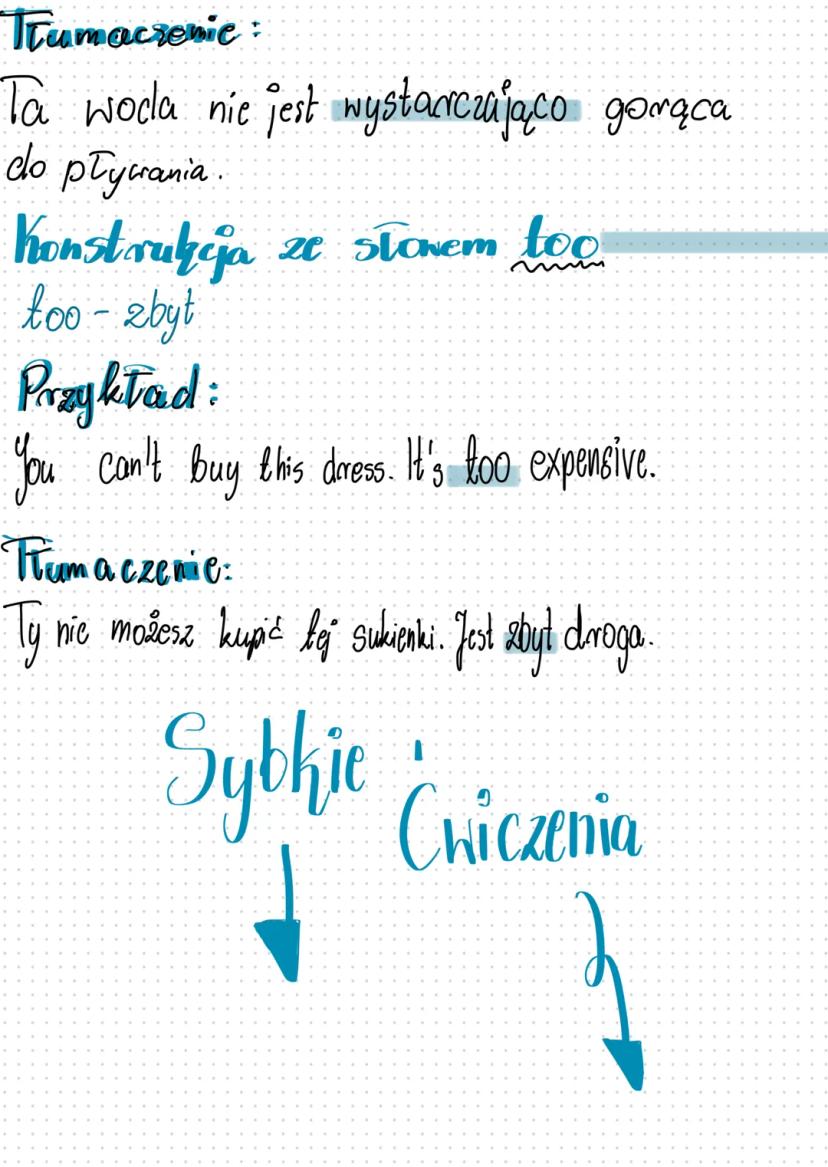 Tłumaczenie:
Ta woda nie jest wystarczająco gorąca
do pływania.
Konstrukcja ze słowem too
too - zbyt
Przykład:
You can't buy this dress. It's too expensive.
Tłumaczenie:
Ty nie możesz kupić tej sukienki. Jest zbyt droga.
Sybkie
Ćwiczenia